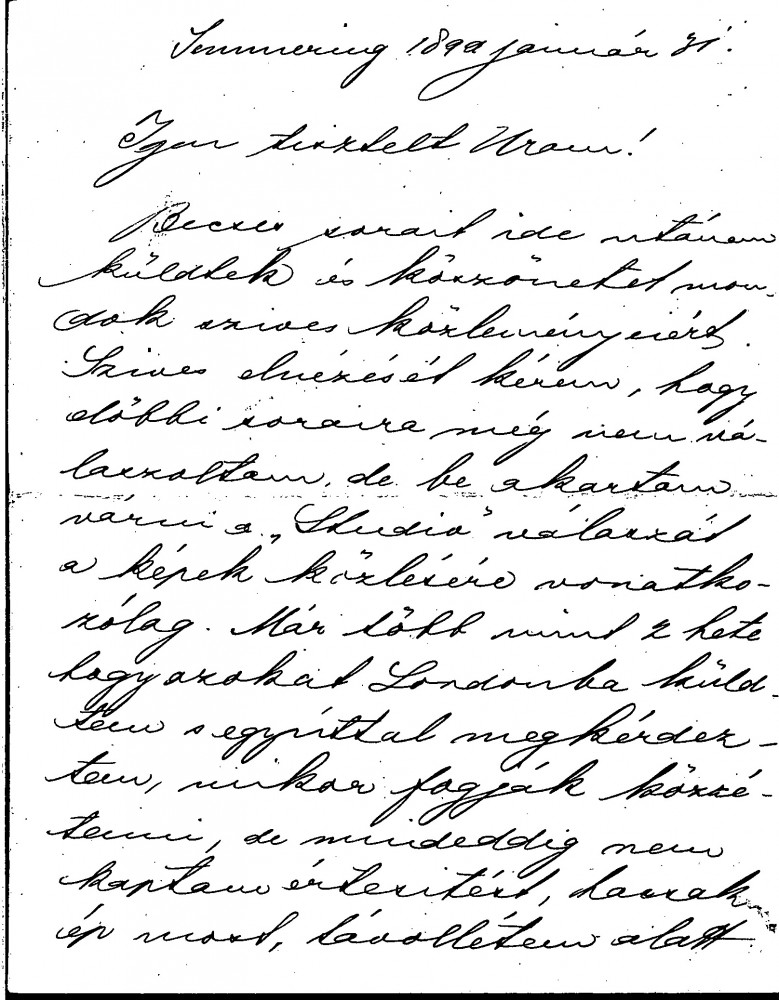 Semmering 189 január 31.
Igen tisztelt Uram!
Becses sorait ide utánam
küldték és köszönetet mon-
dok szives közleményeiért.
Szives elnézését kérem, hogy
előbbi soraira még nem vá-
laszoltam, de be akartam
várni a „Studio" válaszát
a képek közlésére vonatko-
zólag. Már több mint 2 hete
hogy azokat Londonba küld-
tem s egyúttal megkérdez-
tem, mikor fogják közzé-
tenni, de mindeddig nem
kaptam értesitést, hacsak
ép most, távollétem alatt